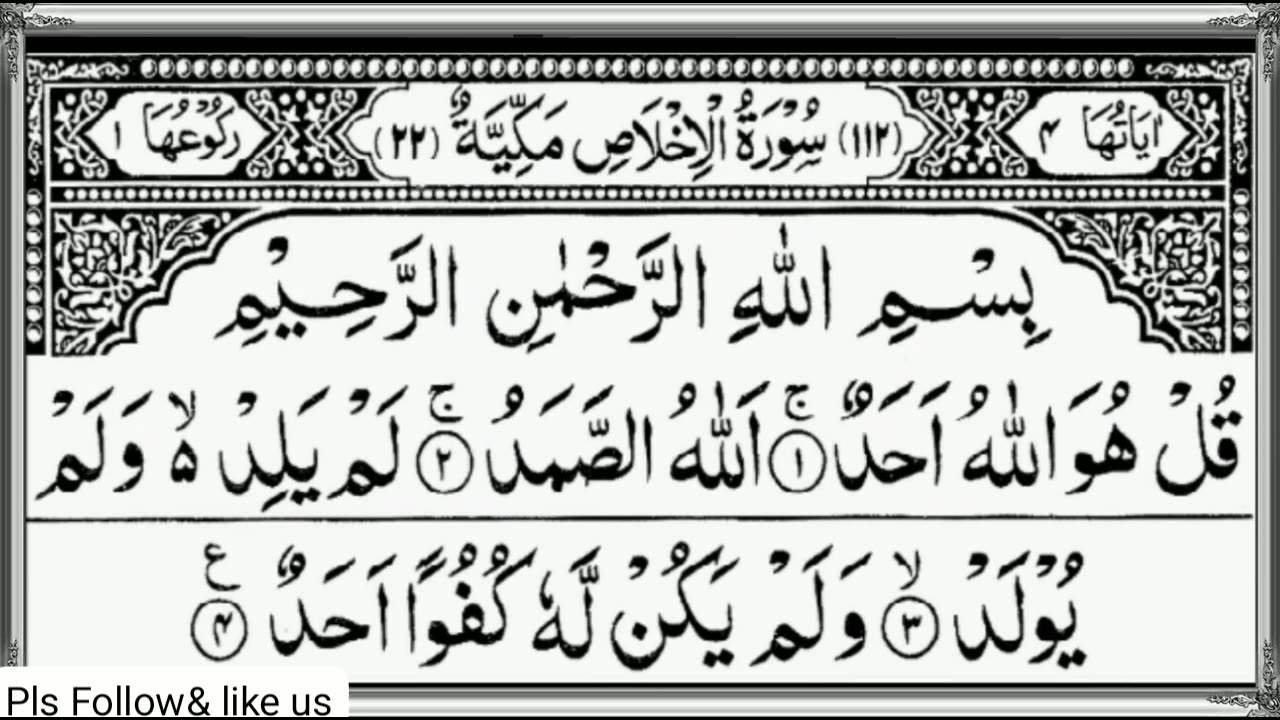 اٰيَاتُهَا ۴ (۱۱۲) سُوْرَةُ الْاِخْلَاصِ مَكِّيَّةٌ (۲۲) رُكُوْعُهَا ۱
بِسْمِ اللّٰهِ الرَّحْمٰنِ الرَّحِيْمِ
قُلْ هُوَ اللّٰهُ اَحَدٌ ۚ ۱ اَللّٰهُ الصَّمَدُ ۚ ۲ لَمْ يَلِدْ ۵ ۙ وَلَمْ
يُوْلَدْ ۙ ۳ وَلَمْ يَكُنْ لَّهٗ كُفُوًا اَحَدٌ ع ۴
Pls Follow& like us